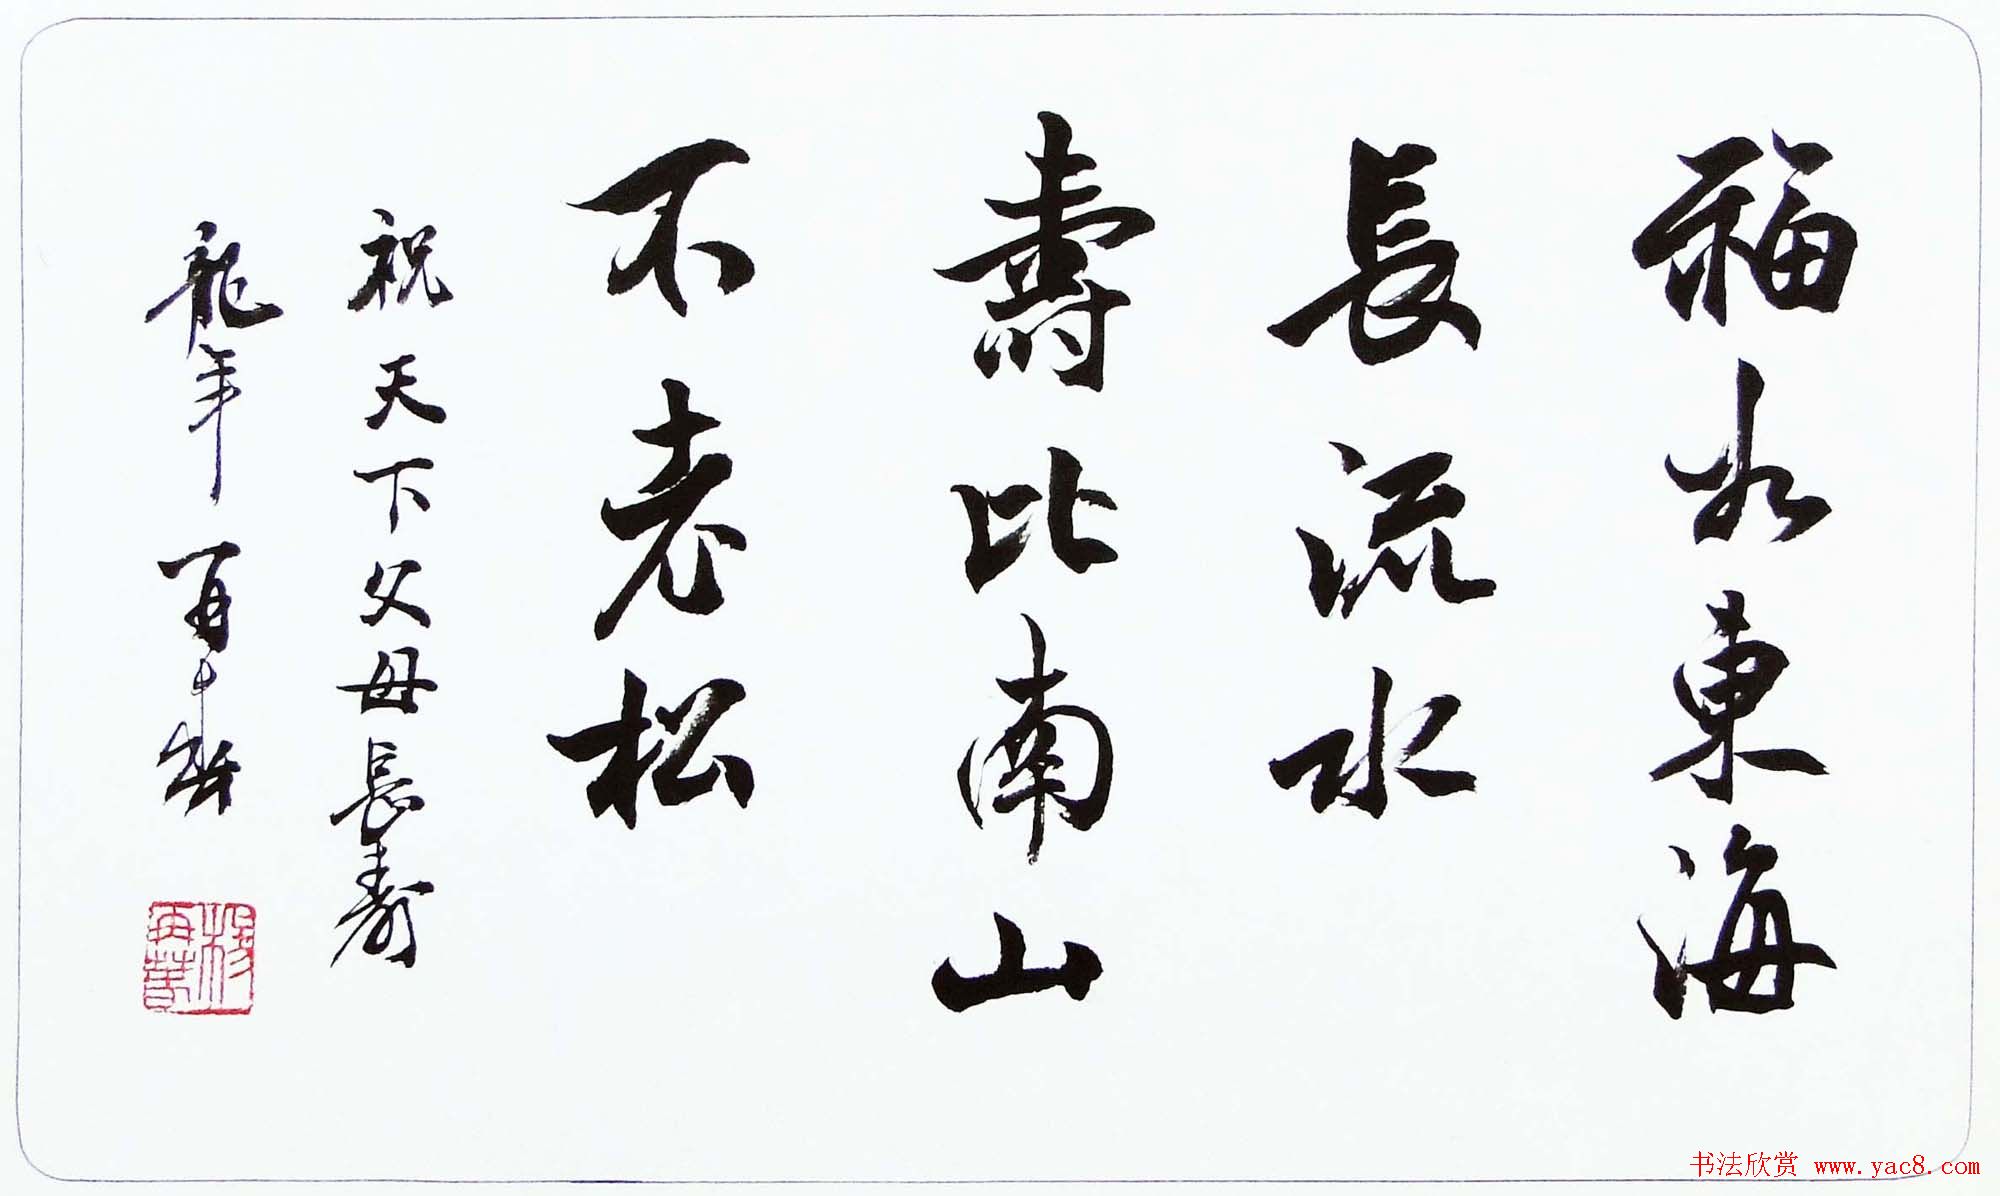 福如東海
長流水
壽比南山
不老松
祝天下父母長壽
龍年再春
楊再春
书法欣赏 www.yac8.com